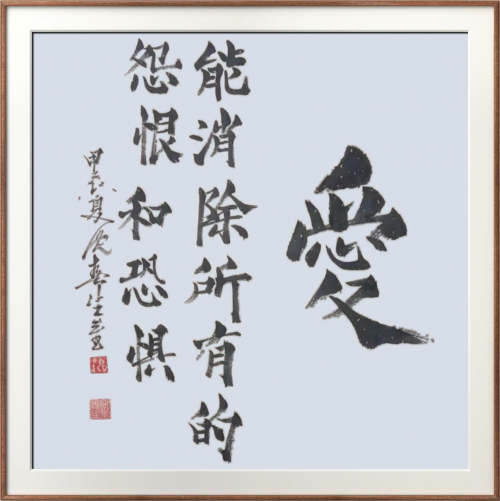 愛
能消除所有的
怨恨和恐惧
甲辰夏